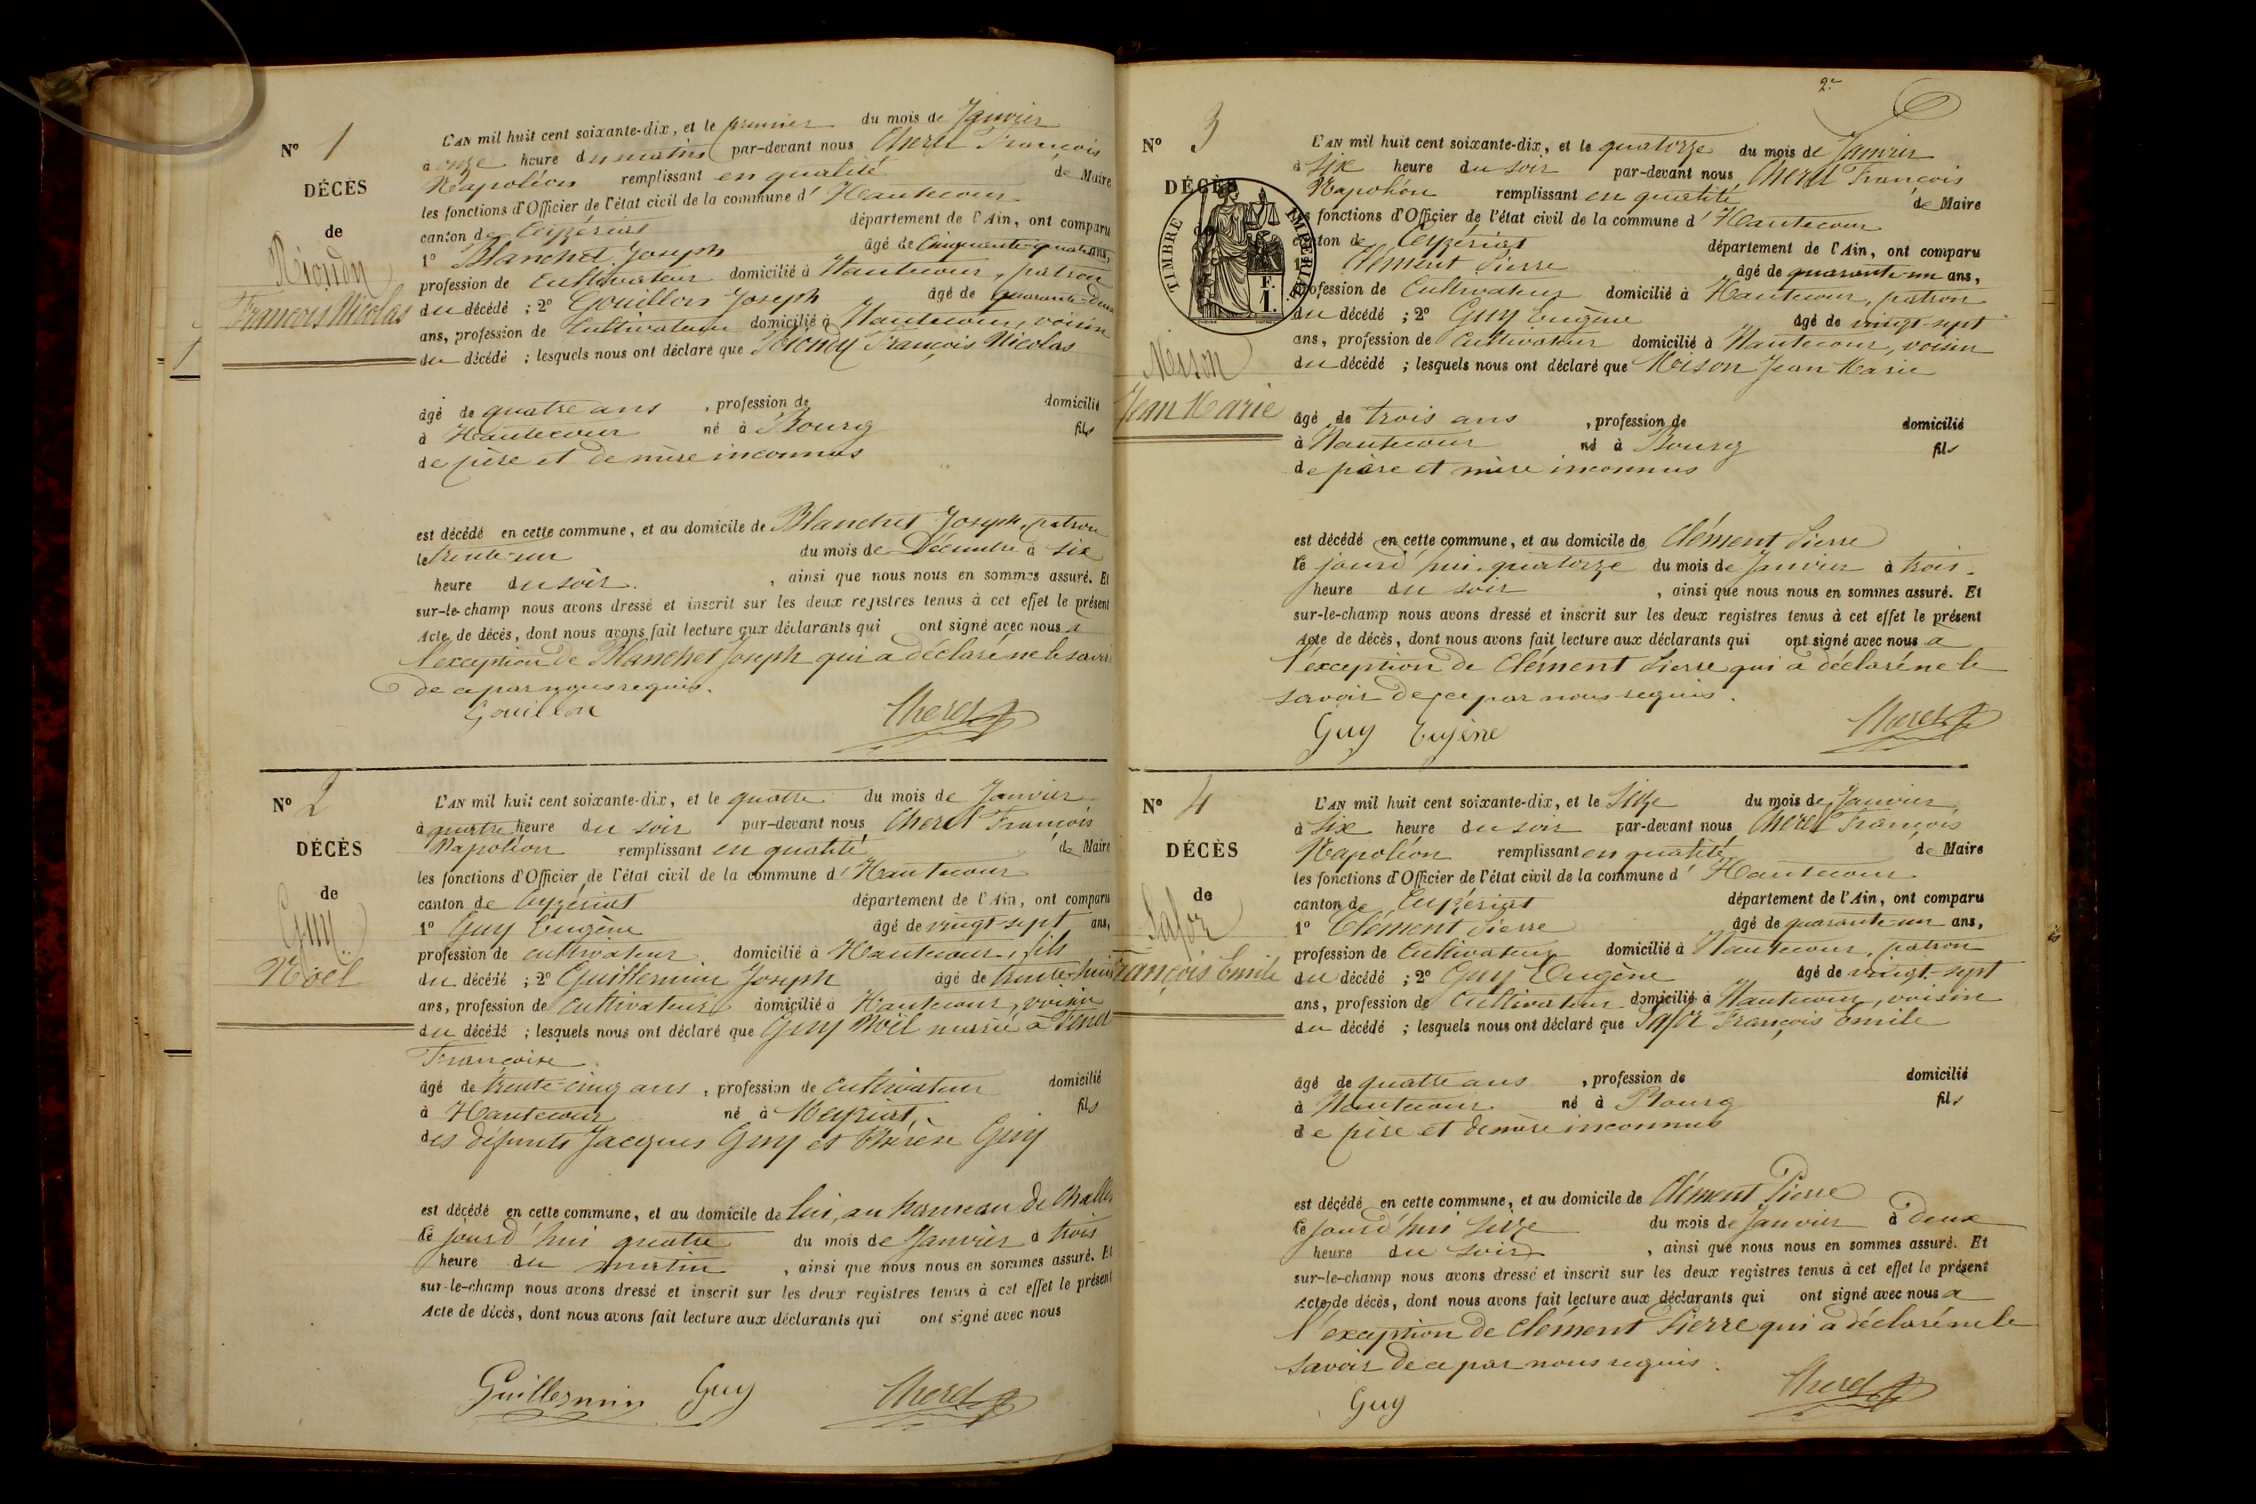 N° 1
DÉCÈS
de
François Nicolas
1
L'AN mil huit cent soixante-dix, et le premier du mois de Janvier
à onze heure du matin par-devant nous Cheret François
Napoléon remplissant en qualité de Maire
les fonctions d'Officier de l'état civil de la commune d' Hautecour
canton de Ceyzériat département de l'Ain, ont comparu
1° Blanchet Joseph âgé de Cinquante-quatre ans,
profession de Cultivateur domicilié à Hautecour, patron
du décédé ; 2° Gouillon Joseph âgé de quarante-deux
ans, profession de Cultivateur domicilié à Hautecour, voisin
du décédé ; lesquels nous ont déclaré que François Nicolas
âgé de quatre ans , profession de domicilié
à Hautecour né à Bourg fils
de père et de mère inconnus
est décédé en cette commune, et au domicile de Blanchet Joseph, patron
le trente-un du mois de Décembre à six
heure du soir , ainsi que nous nous en sommes assuré. Et
sur-le-champ nous avons dressé et inscrit sur les deux registres tenus à cet effet le présent
Acte de décès, dont nous avons fait lecture aux déclarants qui ont signé avec nous à
l'exception de Blanchet Joseph qui a déclaré ne le savoir
de ce par nous requis.
Gouillon Cheret
N° 2
DÉCÈS
de
Guy
Noël
L'AN mil huit cent soixante-dix, et le quatre du mois de Janvier
à quatre heure du soir par-devant nous Cheret François
Napoléon remplissant en qualité de Maire
les fonctions d'Officier de l'état civil de la commune d' Hautecour
canton de Ceyzériat département de l'Ain, ont comparu
1° Guy Eugène âgé de vingt-sept ans,
profession de cultivateur domicilié à Hautecour, fils
du décédé ; 2° Guillermin Joseph âgé de trente-huit
ans, profession de cultivateur domicilié à Hautecour, voisin
du décédé ; lesquels nous ont déclaré que Guy Noël marié à
Françoise
âgé de trente-cinq ans , profession de cultivateur domicilié
à Hautecour né à fils
des défunts Jacques Guy et Thérèse Guy
est décédé en cette commune, et au domicile de lui, au hameau de
le jourd'hui quatre du mois de Janvier à trois
heure du matin , ainsi que nous nous en sommes assuré. Et
sur-le-champ nous avons dressé et inscrit sur les deux registres tenus à cet effet le présent
Acte de décès, dont nous avons fait lecture aux déclarants qui ont signé avec nous
Guillermin Guy Cheret
2e
N° 3
DÉCÈS
de
TIMBRE IMPÉRIAL
F.
1.
Jean Marie
L'AN mil huit cent soixante-dix, et le quatorze du mois de Janvier
à six heure du soir par-devant nous Cheret François
Napoléon remplissant en qualité de Maire
les fonctions d'Officier de l'état civil de la commune d' Hautecour
canton de Ceyzériat département de l'Ain, ont comparu
1° Clément Pierre âgé de quarante-un ans,
profession de Cultivateur domicilié à Hautecour, patron
du décédé ; 2° Guy Eugène âgé de vingt-sept
ans, profession de Cultivateur domicilié à Hautecour, voisin
du décédé ; lesquels nous ont déclaré que Jean Marie
âgé de trois ans , profession de domicilié
à Hautecour né à Bourg fils
de père et mère inconnus
est décédé en cette commune, et au domicile de Clément Pierre
le jourd'hui quatorze du mois de Janvier à trois
heure du soir , ainsi que nous nous en sommes assuré. Et
sur-le-champ nous avons dressé et inscrit sur les deux registres tenus à cet effet le présent
Acte de décès, dont nous avons fait lecture aux déclarants qui ont signé avec nous à
l'exception de Clément Pierre qui a déclaré ne le
savoir de ce par nous requis.
Guy Eugène Cheret
N° 4
DÉCÈS
de
François Emile
L'AN mil huit cent soixante-dix, et le Seize du mois de Janvier
à Six heure du soir par-devant nous Cheret François
Napoléon remplissant en qualité de Maire
les fonctions d'Officier de l'état civil de la commune d' Hautecour
canton de Ceyzériat département de l'Ain, ont comparu
1° Clément Pierre âgé de quarante-un ans,
profession de Cultivateur domicilié à Hautecour, patron
du décédé ; 2° Guy Eugène âgé de vingt-sept
ans, profession de Cultivateur domicilié à Hautecour, voisin
du décédé ; lesquels nous ont déclaré que François Emile
âgé de quatre ans , profession de domicilié
à Hautecour né à Bourg fils
de père et de mère inconnus
est décédé en cette commune, et au domicile de Clément Pierre
le jourd'hui seize du mois de Janvier à deux
heure du soir , ainsi que nous nous en sommes assuré. Et
sur-le-champ nous avons dressé et inscrit sur les deux registres tenus à cet effet le présent
Acte de décès, dont nous avons fait lecture aux déclarants qui ont signé avec nous à
l'exception de Clément Pierre qui a déclaré ne le
savoir de ce par nous requis.
Guy Cheret